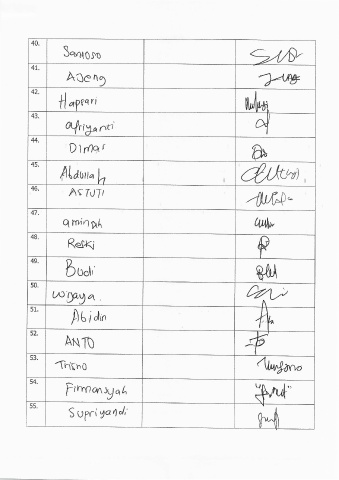 40. Santoso
41. AJeng
42. Hapsari
43. afriyanti
44. Dimas
45. Abdullah
46. ASTUTI
47. aminah
48. Reski
49. Budi
50. wijaya.
51. Abidin
52. ANTO
53. Trisno
54. Firmansyah
55. Supriyandi